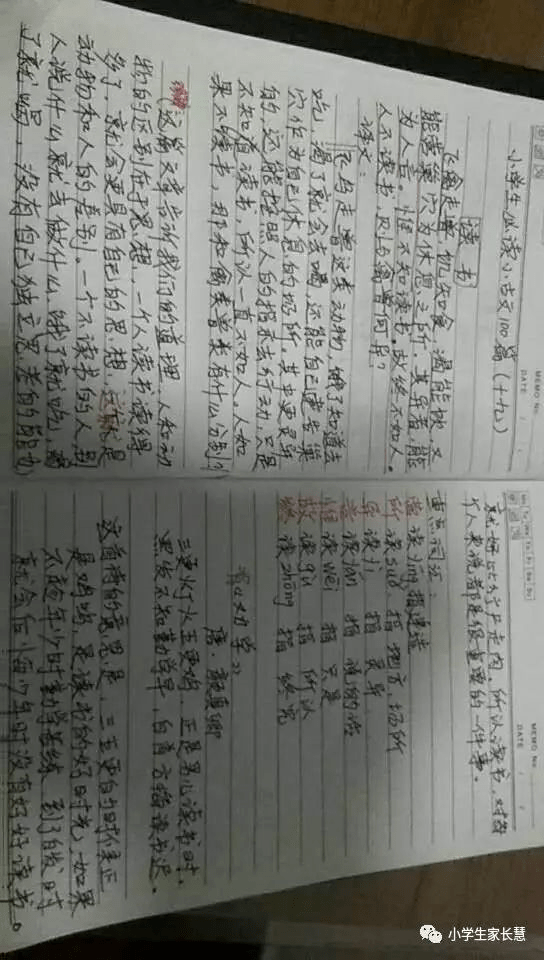 MEMO No.
DATE / /
小学生必读小古文100篇（十九）
读书
飞禽走兽，饥知食，渴能饮，又
能营巢穴为休息之所。其异者，能
为人言。惟不知读书，故终不如人。
人不读书，则与禽兽何异？
译文：
飞鸟走兽这类动物，饿了知道去
吃，渴了就会去喝，还能自己营造巢
穴作为自己休息的场所。其中更异
的，还能按照人的指示去行动，只是
不知道读书，所以一直不如人，人如
果不读书，那和禽类兽类有什么分别呢
（这篇文章告诉我们的道理：人和动
物的区别在于思想，一个人读书读得
多了，就会更具有自己的思想，这就是
动物和人的差别。一个不读书的人，别
人说什么就去做什么，饿了就吃，渴
了就喝，没有自己独立思考的能力
MEMO No.
DATE / /
就好比行尸走肉，所以读书，对每
个人来说都是很重要的一件事。
重点词汇：
营 读yíng 指建造
所 读suǒ 指地方、场所
异 读yì 指灵异
言 读yán 指说的话
惟 读wéi 指只是
故 读gù 指所以
终 读zhōng 指终究
《劝学》
唐 颜真卿
三更灯火五更鸡，正是男儿读书时，
黑发不知勤学早，白首方悔读书迟。
这首诗的意思是，三五更的时候正
是鸡鸣，是读书的好时光，如果
不趁年少时勤学苦练，到了白发时
就会后悔少年时没有好好读书。
小学生家长慧